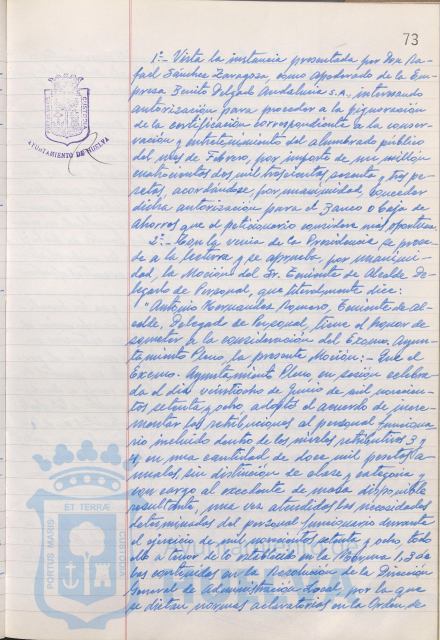 73
1º.- Vista la instancia presentada por Don Ra-
fael Sánchez Zaragoza, como apoderado de la Em-
presa Benito Delgado Andalucía S.A., interesando
autorización para proceder a la pignoración
de la certificación correspondiente a la conser-
vación y entretenimiento del alumbrado público
del mes de Febrero, por importe de un millón
cuatrocientas dos mil trescientas sesenta y tres pe-
setas, acordándose, por unanimidad, conceder
dicha autorización para el Banco o Caja de
Ahorros que el peticionario considere más oportuna.
2º.- Con la venia de la Presidencia se proce-
de a la lectura, y se aprueba, por unanimi-
dad, la Moción del Sr. Teniente de Alcalde De-
legado de Personal, que literalmente dice:
"Antonio Hernández Romero, Teniente de Al-
calde, Delegado de Personal, tiene el honor de
someter a la consideración del Excmo. Ayun-
tamiento Pleno, la presente Moción:- Que el
Excmo. Ayuntamiento Pleno en sesión celebra-
da el día veintiocho de Junio de mil novecien-
tos setenta y ocho adoptó el acuerdo de incre-
mentar las retribuciones al personal funciona-
rio incluido dentro de los niveles retributivos 3 y
4, en una cantidad de doce mil pesetas
anuales, sin distinción de clase y categoría,
con cargo al excedente de masa disponible
resultante, una vez atendidas las necesidades
determinadas del personal funcionario durante
el ejercicio de mil novecientos setenta y ocho todo
ello a tenor de lo establecido en la Norma 1,3 de
las contenidas en la Resolución de la Dirección
General de Administración Local, por la que
se dictan normas aclaratorias en la Orden, de
AYUNTAMIENTO DE HUELVA
PORTUS MARIS ET TERRAE CUSTODIA